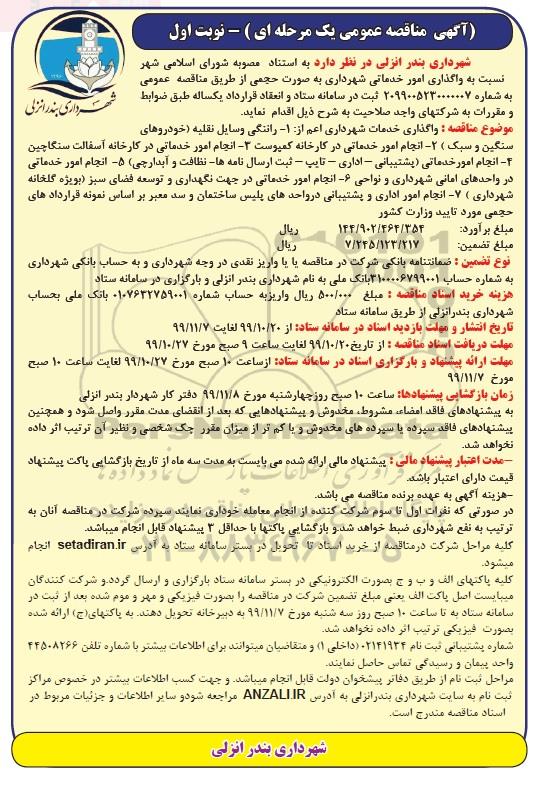 (آگهی مناقصه عمومی یک مرحله ای ) – نوبت اول
شهرداری بندر انزلی
شهرداری بندر انزلی در نظر دارد به استناد مصوبه شورای اسلامی شهر
نسبت به واگذاری امور خدماتی شهرداری به صورت حجمی از طریق مناقصه عمومی
به شماره ۲۰۹۹۰۰۵۲۳۰۰۰۰۰۰۷ ثبت در سامانه ستاد و انعقاد قرارداد یکساله طبق ضوابط
و مقررات به شرکتهای واجد صلاحیت به شرح ذیل اقدام نماید.
موضوع مناقصه : واگذاری خدمات شهرداری اعم از: ۱- رانندگی وسایل نقلیه (خودروهای
سنگین و سبک ) ۲- انجام امور خدماتی در کارخانه کمپوست ۳- انجام امور خدماتی در کارخانه آسفالت سنگاچین
۴- انجام امورخدماتی (پشتیبانی – اداری – تایپ – ثبت ارسال نامه ها- نظافت و آبدارچی) ۵- انجام امور خدماتی
در واحدهای امانی شهرداری و نواحی ۶- انجام امور خدماتی در جهت نگهداری و توسعه فضای سبز (بویژه گلخانه
شهرداری ) ۷- انجام امور اداری و پشتیبانی درواحد های پلیس ساختمان و سد معبر بر اساس نمونه قرارداد های
حجمی مورد تایید وزارت کشور
مبلغ برآورد: ۱۴۴/۹۰۲/۴۶۴/۳۵۴ ریال
مبلغ تضمین: ۷/۲۴۵/۱۲۳/۲۱۷ ریال
نوع تضمین : ضمانتنامه بانکی شرکت در مناقصه یا یا واریز نقدی در وجه شهرداری و به حساب بانکی شهرداری
به شماره حساب ۳۱۰۰۰۰۶۷۹۹۰۰۱بانک ملی به نام شهرداری بندر انزلی و بارگزاری در سامانه ستاد
هزینه خرید اسناد مناقصه : مبلغ ۵۰۰/۰۰۰ ریال واریزبه حساب شماره ۰۱۰۷۶۳۲۷۵۹۰۰۱ بانک ملی بحساب
شهرداری بندرانزلی از طریق سامانه ستاد
تاریخ انتشار و مهلت بازدید اسناد در سامانه ستاد: از ۹۹/۱۰/۲۰ لغایت ۹۹/۱۱/۷
مهلت دریافت اسناد مناقصه : از تاریخ۹۹/۱۰/۲۰ لغایت ساعت ۹ صبح مورخ ۹۹/۱۰/۲۷
مهلت ارائه پیشنهاد و بارگزاری اسناد در سامانه ستاد: ازساعت ۱۰ صبح مورخ ۹۹/۱۰/۲۷ لغایت ساعت ۱۰ صبح
مورخ ۹۹/۱۱/۷
زمان بازگشایی پیشنهادها: ساعت ۱۰ صبح روزچهارشنبه مورخ ۹۹/۱۱/۸ دفتر کار شهردار بندر انزلی
به پیشنهادهای فاقد امضاء، مشروط، مخدوش و پیشنهادهایی که بعد از انقضای مدت مقرر واصل شود و همچنین
پیشنهادهای فاقد سپرده یا سپرده های مخدوش و یا کم تر از میزان مقرر چک شخصی و نظیر آن ترتیب اثر داده
نخواهد شد.
–مدت اعتبار پیشنهاد مالی : پیشنهاد مالی ارائه شده می بایست به مدت سه ماه از تاریخ بازگشایی پاکت پیشنهاد
قیمت دارای اعتبار باشد.
-هزینه آگهی به عهده برنده مناقصه می باشد.
در صورتی که نفرات اول تا سوم شرکت کننده از انجام معامله خودداری نمایند سپرده شرکت در مناقصه آنان به
ترتیب به نفع شهرداری ضبط خواهد شد.و بازگشایی پاکتها با حداقل ۳ پیشنهاد قابل انجام میباشد.
کلیه مراحل شرکت درمناقصه از خرید اسناد تا تحویل در بستر سامانه ستاد به آدرس setadiran.ir انجام
میشود.
کلیه پاکتهای الف و ب و ج بصورت الکترونیکی در بستر سامانه ستاد بارگزاری و ارسال گردد.و شرکت کنندگان
میبایست اصل پاکت الف یعنی مبلغ تضمین شرکت در مناقصه را بصورت فیزیکی و مهر و موم شده بعد از ثبت در
سامانه ستاد به تا ساعت ۱۰ صبح روز سه شنبه مورخ ۹۹/۱۱/۷ به دبیرخانه تحویل دهند. به پاکتهای(ج) ارائه شده
بصورت فیزیکی ترتیب اثر داده نخواهد شد.
شماره پشتیبانی ثبت نام ۰۲۱۴۱۹۳۴(داخلی ۱) و متقاضیان میتوانند برای اطلاعات بیشتر با شماره تلفن ۴۴۵۰۸۲۶۶
واحد پیمان و رسیدگی تماس حاصل نمایند.
مراحل ثبت نام از طریق دفاتر پیشخوان دولت قابل انجام میباشد. و جهت کسب اطلاعات بیشتر در خصوص مراکز
ثبت نام به سایت شهرداری بندرانزلی به آدرس ANZALI.IR مراجعه شودو سایر اطلاعات و جزئیات مربوط در
اسناد مناقصه مندرج است.
شهرداری بندر انزلی